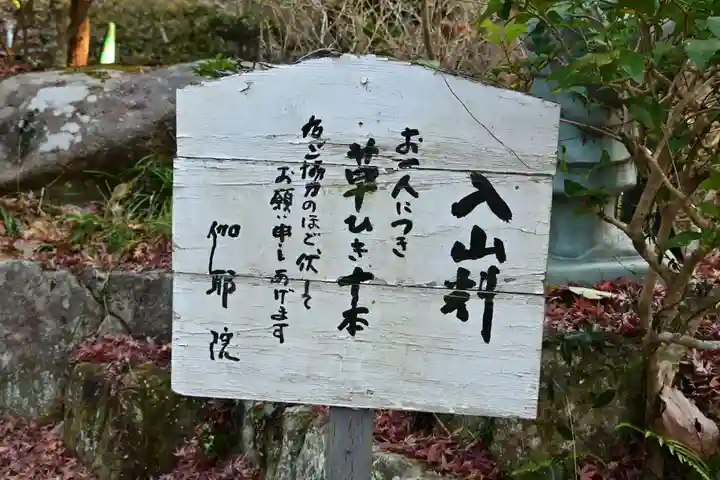 入山料
お一人につき
草ひき十本
何卒ご協力のほど、伏して
お願い申しあげます
伽耶院